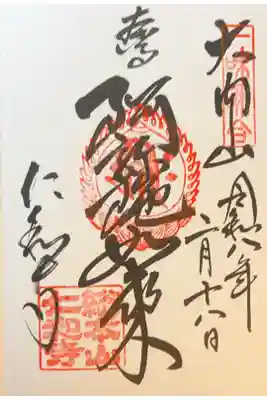 大内山
令和八年
二月十八日
阿弥陀如来
仁和寺
総本山
仁和寺